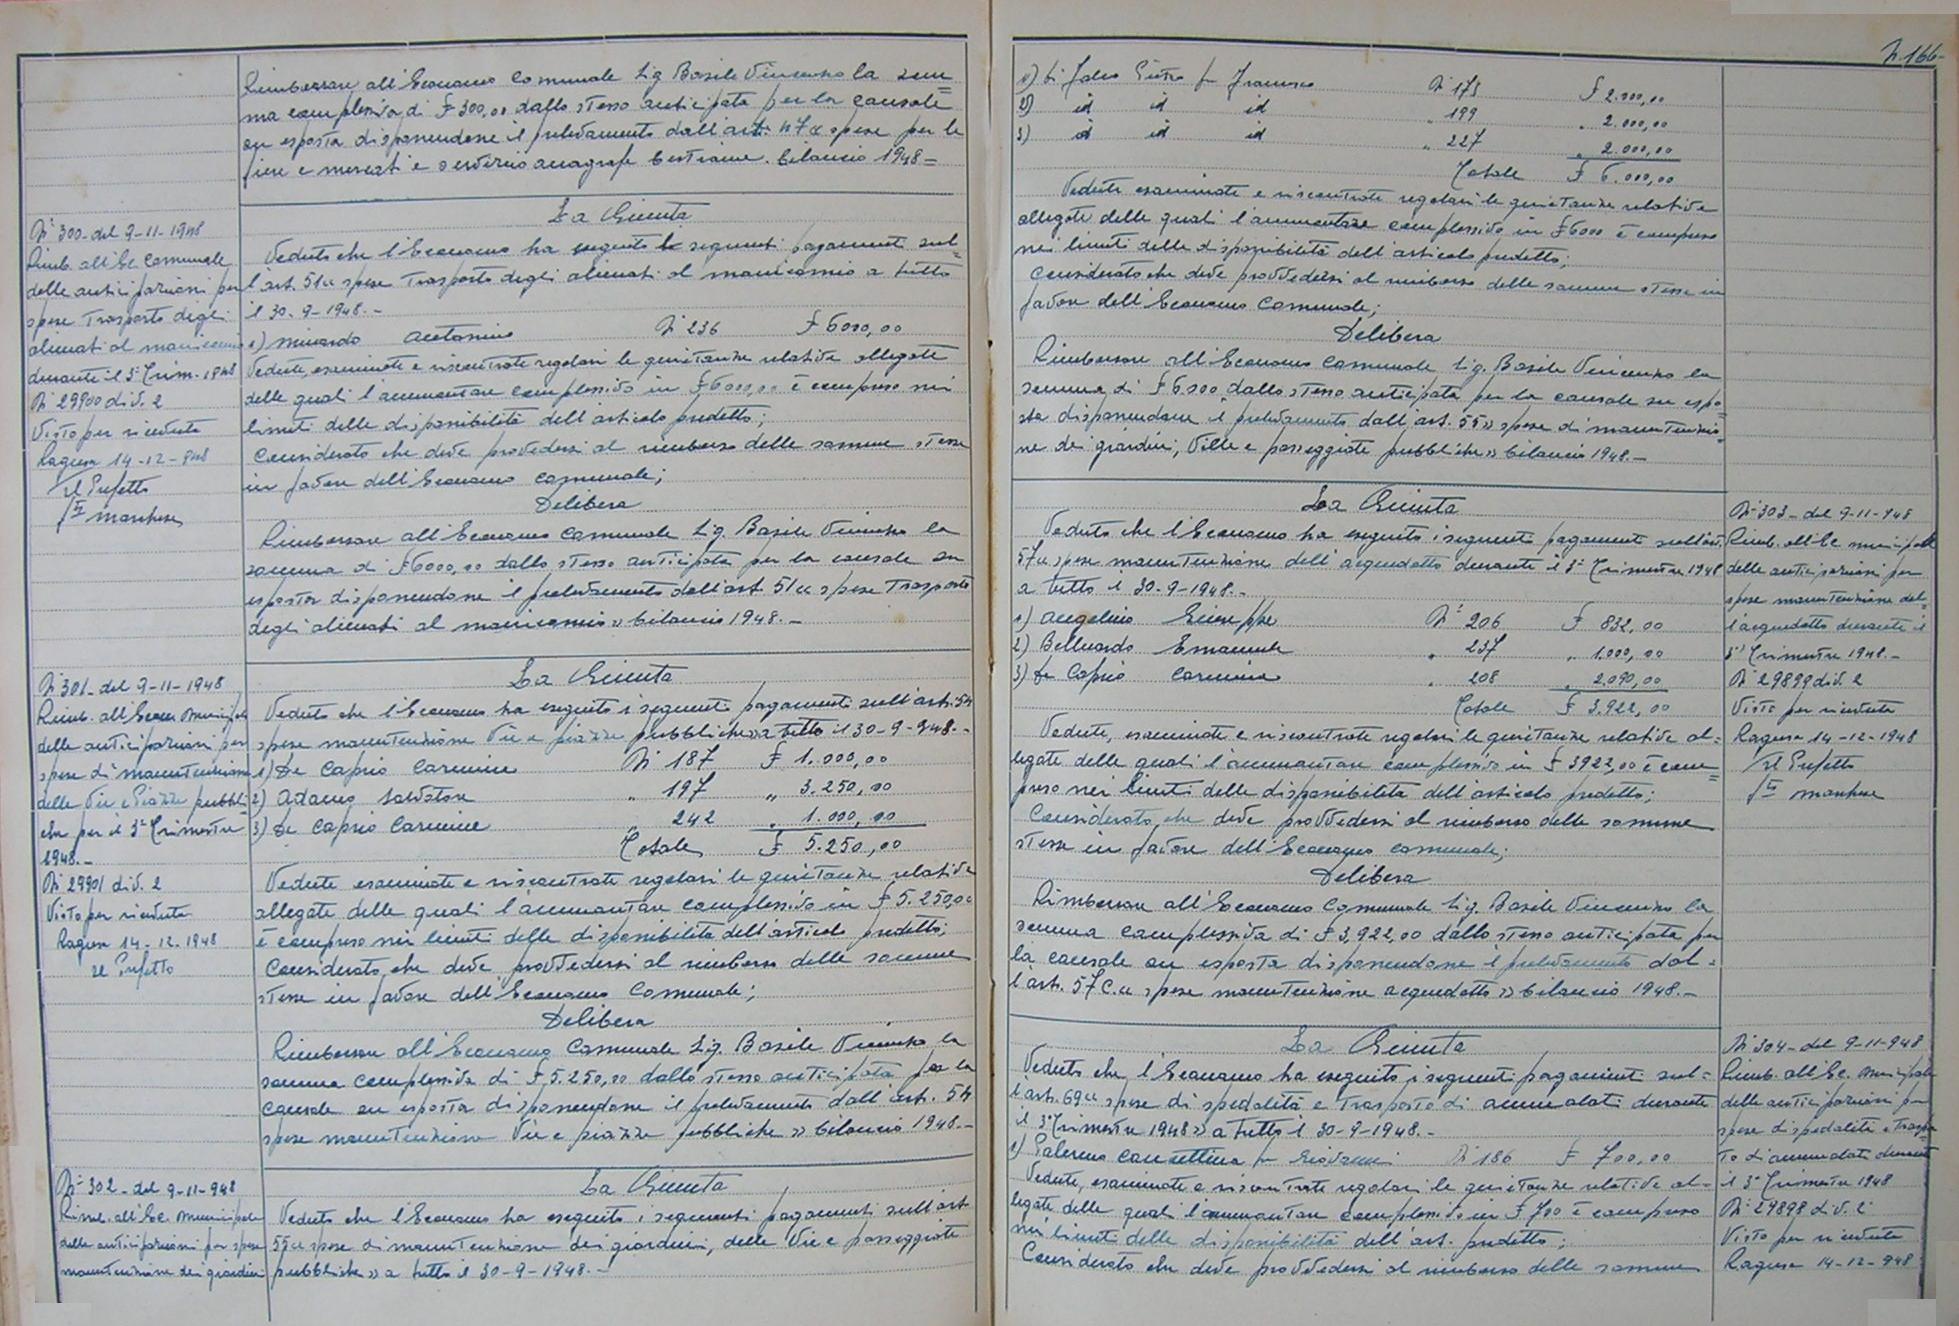 Rimborsare all'Economo Comunale Sig. Basile Vincenzo la som=
ma complessiva di £ 300,00 dallo stesso anticipata per la causale
su esposta disponendone il prelevamento dall'art. 47 « spese per le
fiere e mercati e servizio anagrafe bestiame. bilancio 1948 =
N° 300 - del 9-11-1948
Rimb. all'Ec. Comunale
delle anticipazioni per
spese Trasporto degli
alienati al manicomio
durante il 3° Trim. 1948
N° 29900 div. 2
Visto per ricevuta
Ragusa 14-12-948
Il Prefetto
Marchese
La Giunta
Veduto che l'Economo ha eseguito i seguenti pagamenti sul=
l'art. 51 « spese Trasporto degli alienati al manicomio a tutto
il 30-9-1948.-
1) Minardo Antonino N° 236 £ 6000,00
Vedute, esaminate e riscontrate regolari le quietanze relative allegate
delle quali l'ammontare complessivo in £ 6000,00 è compreso nei
limiti delle disponibilità dell'articolo predetto;
Considerato che deve provvedersi al rimborso delle somme stesse
in favore dell'Economo Comunale;
Delibera
Rimborsare all'Economo Comunale Sig. Basile Vincenzo la
somma di £ 6000,00 dallo stesso anticipata per la causale su
esposta disponendone il prelevamento dall'art. 51 « spese Trasporto
degli alienati al manicomio » bilancio 1948.-
N° 301 - del 9-11-1948
Rimb. all'Econ. Municipale
delle anticipazioni per
spese di manutenzione
delle Vie e Piazze pubbli
che per il 3° Trimestre
1948.-
N° 29901 div. 2
Visto per ricevuta
Ragusa 14-12-1948
Il Prefetto
La Giunta
Veduto che l'Economo ha eseguito i seguenti pagamenti sull'art. 54
spese manutenzione Vie e piazze pubbliche » a tutto il 30-9-948.-
1) De Caprio Carmine N° 187 £ 1.000,00
2) Adamo Salvatore " 197 " 3.250,00
3) De Caprio Carmine " 242 " 1.000,00
Totale £ 5.250,00
Vedute esaminate e riscontrate regolari le quietanze relative
allegate delle quali l'ammontare complessivo in £ 5.250,00
è compreso nei limiti delle disponibilità dell'articolo predetto;
Considerato che deve provvedersi al rimborso delle somme
stesse in favore dell'Economo Comunale;
Delibera
Rimborsare all'Economo Comunale Sig. Basile Vincenzo la
somma complessiva di £ 5.250,00 dallo stesso anticipata per la
causale su esposta disponendone il prelevamento dall'art. 54
spese manutenzione Vie e piazze pubbliche » bilancio 1948.-
N° 302 - del 9-11-948
Rimb. all'Ec. Municipale
delle anticipazioni per spese
manutenzione dei giardini
La Giunta
Veduto che l'Economo ha eseguito i seguenti pagamenti sull'art.
55 « spese di manutenzione dei giardini, delle Vie e passeggiate
pubbliche » a tutto il 30-9-1948.-
N 166-
1) Di Falco Pietro fu Francesco N 173 £ 2.000,00
2) id id id " 199 " 2.000,00
3) id id id " 227 " 2.000,00
Totale £ 6.000,00
Vedute esaminate e riscontrate regolari le quietanze relative
allegate delle quali l'ammontare complessivo in £ 6000 è compreso
nei limiti delle disponibilità dell'articolo predetto;
Considerato che deve provvedersi al rimborso delle somme stesse in
favore dell'Economo Comunale;
Delibera
Rimborsare all'Economo Comunale Sig. Basile Vincenzo la
somma di £ 6.000 dallo stesso anticipata per la causale su espo=
sta disponendone il prelevamento dall'art. 55 » spese di manutenzio=
ne dei giardini, Ville e passeggiate pubbliche » bilancio 1948.-
La Giunta
Veduto che l'Economo ha eseguito i seguenti pagamenti sull'art.
57 « spese manutenzione dell'acquedotto durante il 3° Trimestre 1948
a tutto il 30-9-1948.-
1) Angelino Giuseppe N° 206 £ 832,00
2) Belluardo Emanuele " 237 " 1.000,00
3) De Caprio Carmine " 208 " 2.090,00
Totale £ 3.922,00
Vedute, esaminate e riscontrate regolari le quietanze relative al=
legate delle quali l'ammontare complessivo in £ 3922,00 è com=
preso nei limiti delle disponibilità dell'articolo predetto;
Considerato che deve provvedersi al rimborso delle somme
stesse in favore dell'Economo Comunale;
Delibera
Rimborsare all'Economo Comunale Sig. Basile Vincenzo la
somma complessiva di £ 3,922,00 dallo stesso anticipata per
la causale su esposta disponendone il prelevamento dal=
l'art. 57 C. « spese manutenzione acquedotto » bilancio 1948.-
N° 303 - del 9-11-948
Rimb. all'Ec. Municipale
delle anticipazioni per
spese manutenzione del=
l'acquedotto durante il
3° Trimestre 1948.-
N° 29899 div. 2
Visto per ricevuta
Ragusa 14-12-1948
Il Prefetto
Marchese
La Giunta
Veduto che l'Economo ha eseguito i seguenti pagamenti sul=
l'art. 69 « spese di spedalità e Trasporto di ammalati durante
il 3° Trimestre 1948 » a tutto il 30-9-1948.-
1) Palermo Concettina fu Giovanni N° 186 £ 700,00
Vedute, esaminate e riscontrate regolari le quietanze relative al=
legate delle quali l'ammontare complessivo in £ 700 è compreso
nei limiti delle disponibilità dell'art. predetto;
Considerato che deve provvedersi al rimborso delle somme
N° 304 - del 9-11-948
Rimb. all'Ec. Municipale
delle anticipazioni per
spese di spedalità e Traspor
to di ammalati durante
il 3° Trimestre 1948
N° 29898 div. 2
Visto per ricevuta
Ragusa 14-12-948